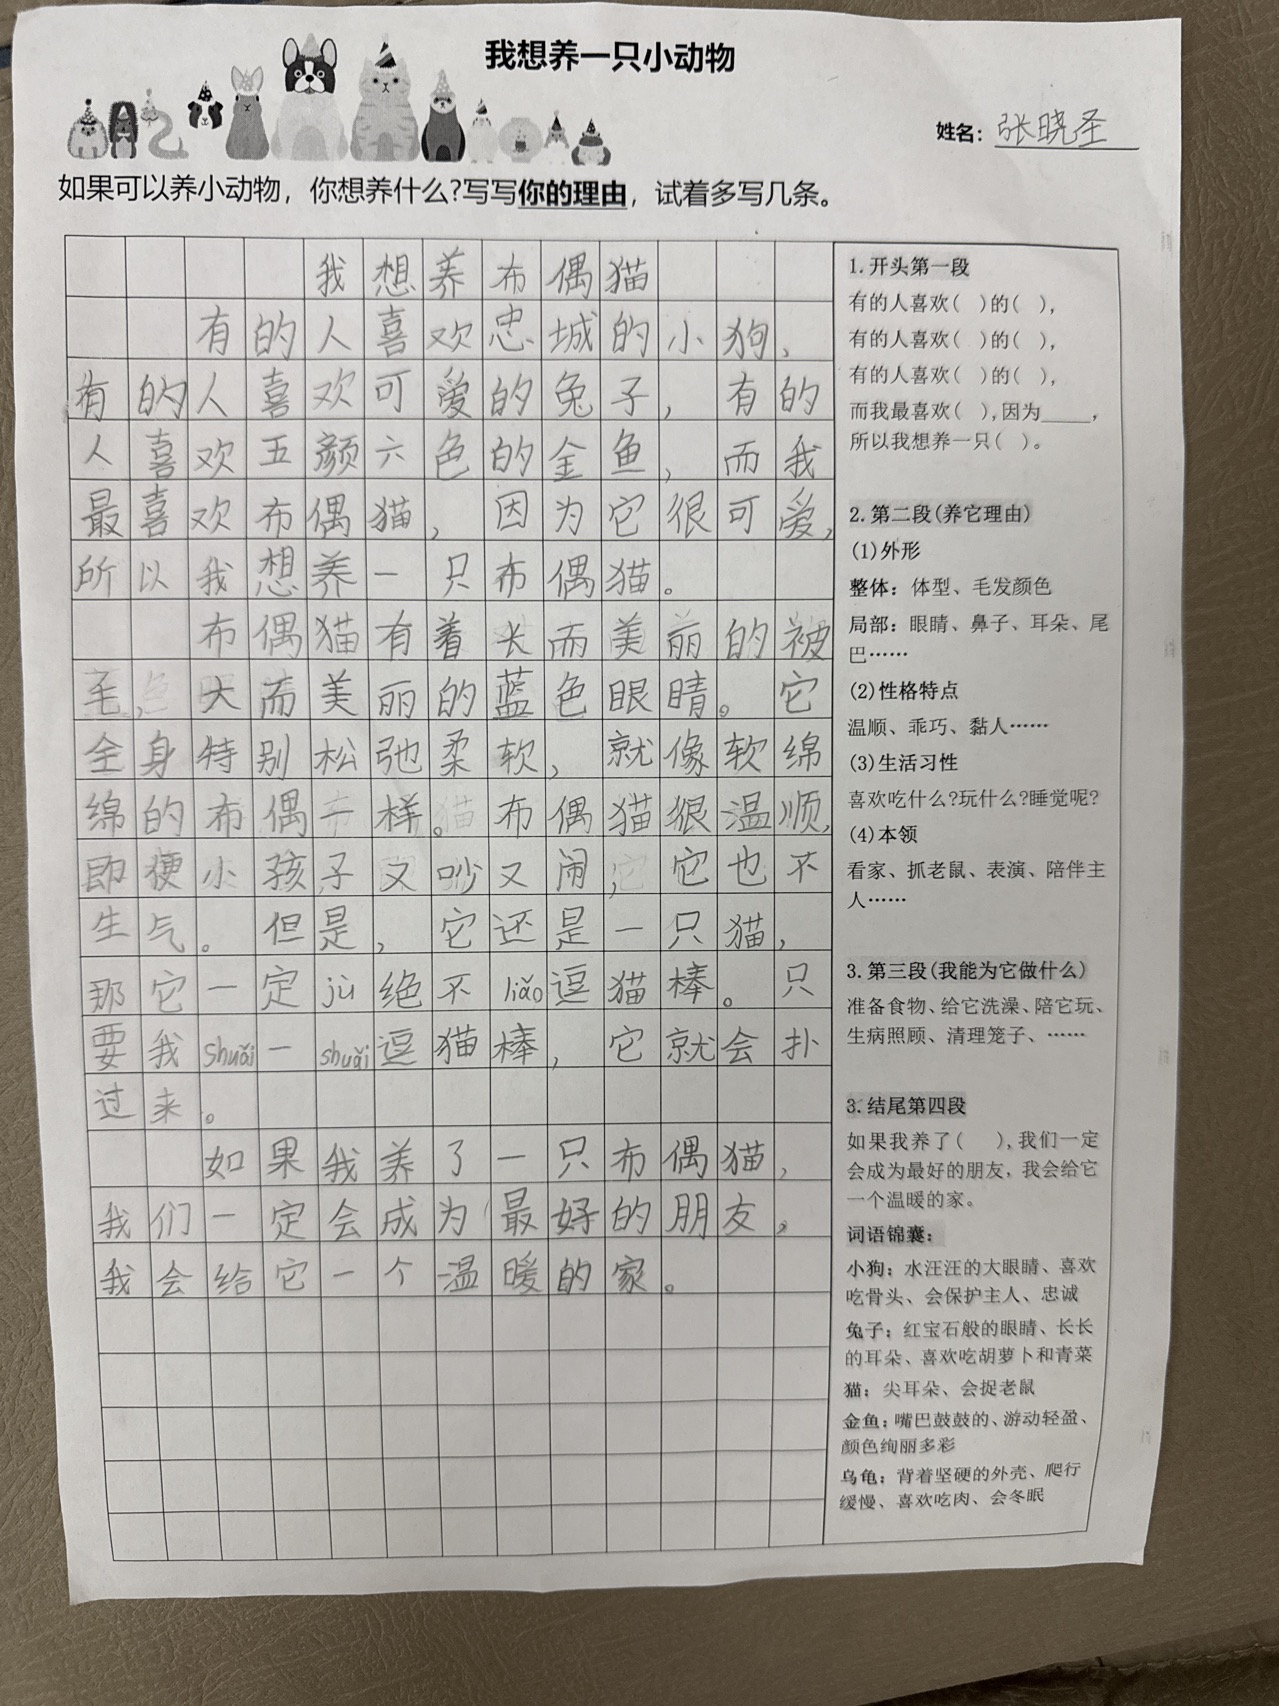 我想养一只小动物
姓名：张晓圣
如果可以养小动物，你想养什么?写写你的理由，试着多写几条。
我想养布偶猫
有的人喜欢忠城的小狗，
有的人喜欢可爱的兔子，有的
人喜欢五颜六色的金鱼，而我
最喜欢布偶猫，因为它很可爱，
所以我想养一只布偶猫。
布偶猫有着长而美丽的被
毛，大而美丽的蓝色眼睛。它
全身特别松弛柔软，就像软绵
绵的布偶一样。布偶猫很温顺，
即便小孩子又吵又闹，它也不
生气。但是，它还是一只猫，
那它一定jù绝不liǎo逗猫棒。只
要我shuǎi一shuǎi逗猫棒，它就会扑
过来。
如果我养了一只布偶猫，
我们一定会成为最好的朋友，
我会给它一个温暖的家。
1.开头第一段
有的人喜欢( )的( )，
有的人喜欢( )的( )，
有的人喜欢( )的( )，
而我最喜欢( ),因为____，
所以我想养一只( )。
2.第二段(养它理由)
(1)外形
整体：体型、毛发颜色
局部：眼睛、鼻子、耳朵、尾
巴……
(2)性格特点
温顺、乖巧、黏人……
(3)生活习性
喜欢吃什么?玩什么?睡觉呢?
(4)本领
看家、抓老鼠、表演、陪伴主
人……
3.第三段(我能为它做什么)
准备食物、给它洗澡、陪它玩、
生病照顾、清理笼子、……
3.结尾第四段
如果我养了( ),我们一定
会成为最好的朋友，我会给它
一个温暖的家。
词语锦囊：
小狗：水汪汪的大眼睛、喜欢
吃骨头、会保护主人、忠诚
兔子：红宝石般的眼睛、长长
的耳朵、喜欢吃胡萝卜和青菜
猫：尖耳朵、会捉老鼠
金鱼：嘴巴鼓鼓的、游动轻盈、
颜色绚丽多彩
乌龟：背着坚硬的外壳、爬行
缓慢、喜欢吃肉、会冬眠